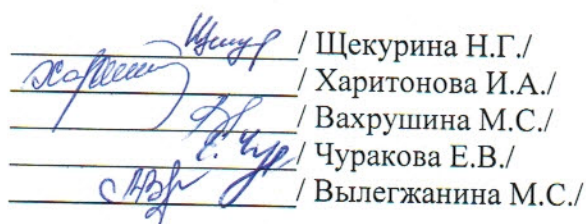 / Щекурина Н.Г./
/ Харитонова И.А./
/ Вахрушина М.С./
/ Чуракова Е.В./
/ Вылегжанина М.С./